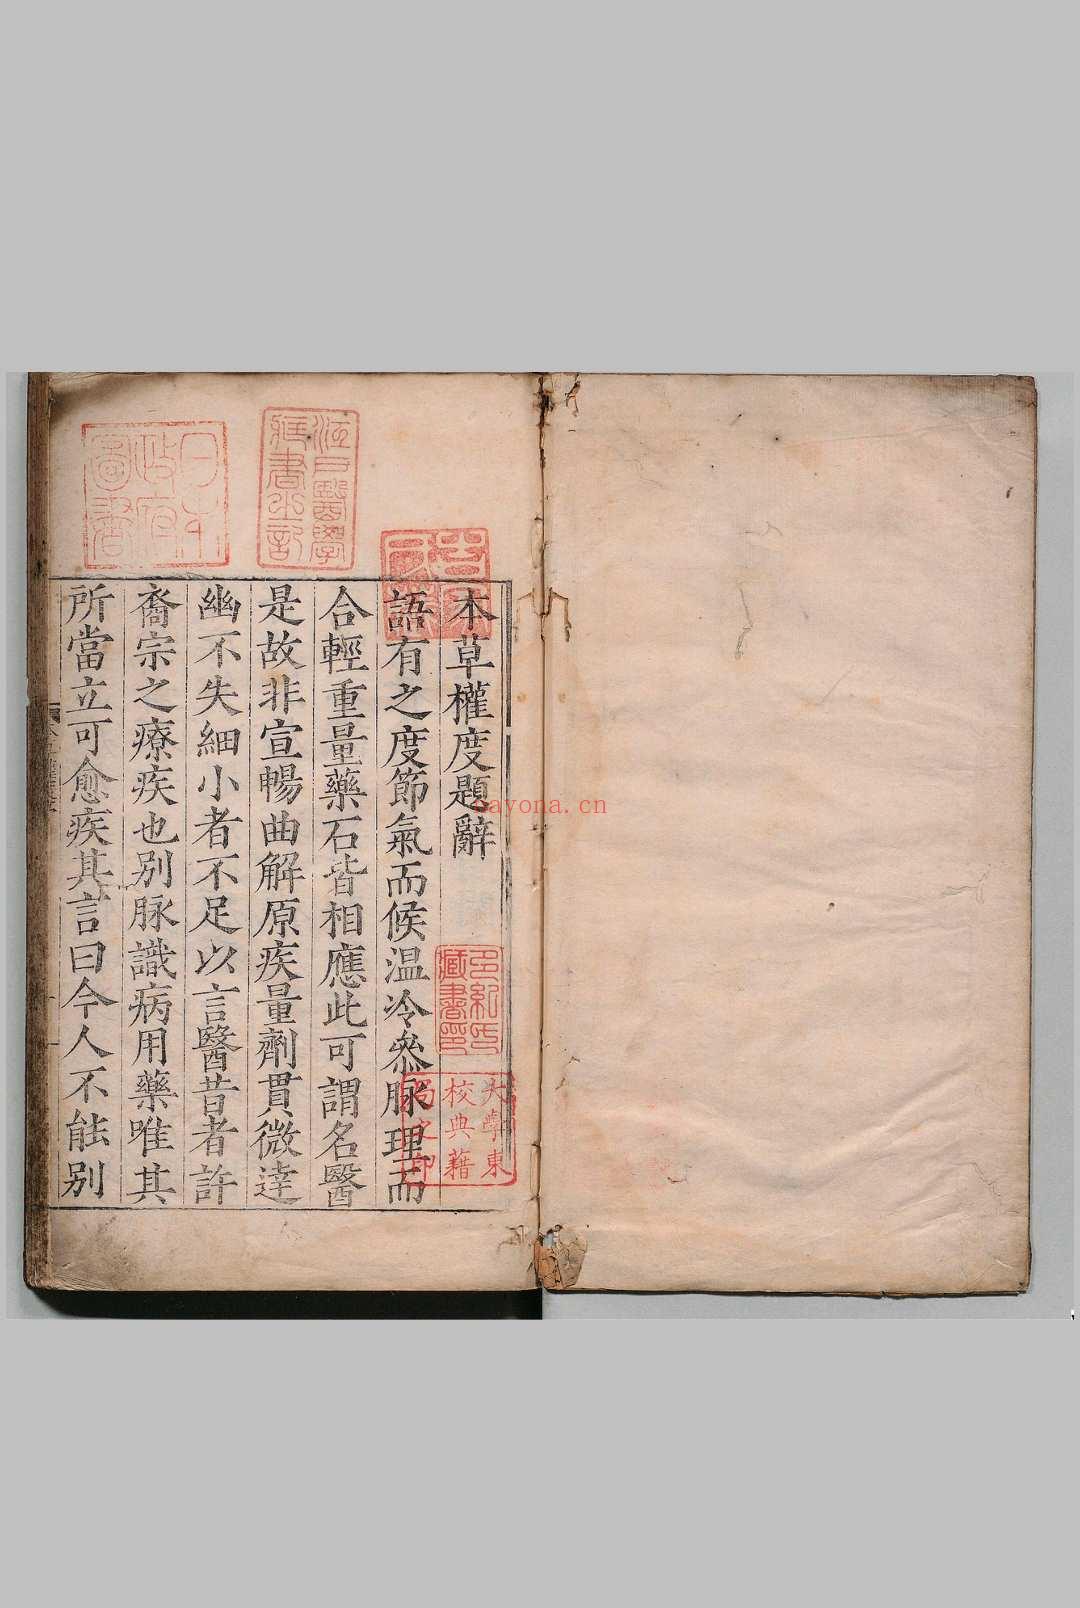 本草權度題辭
語有之度節氣而候温冷參脉理而
合輕重量藥石皆相應此可謂名醫
是故非宣暢曲解原疾量劑貫微達
幽不失細小者不足以言醫昔者許
裔宗之療疾也別脉識病用藥唯其
所當立可愈疾其言曰今人不能別
江戸醫學
藏書之記
日本
政府
圖書
藏書印
大學東
校典籍
局之印
bayona.cn